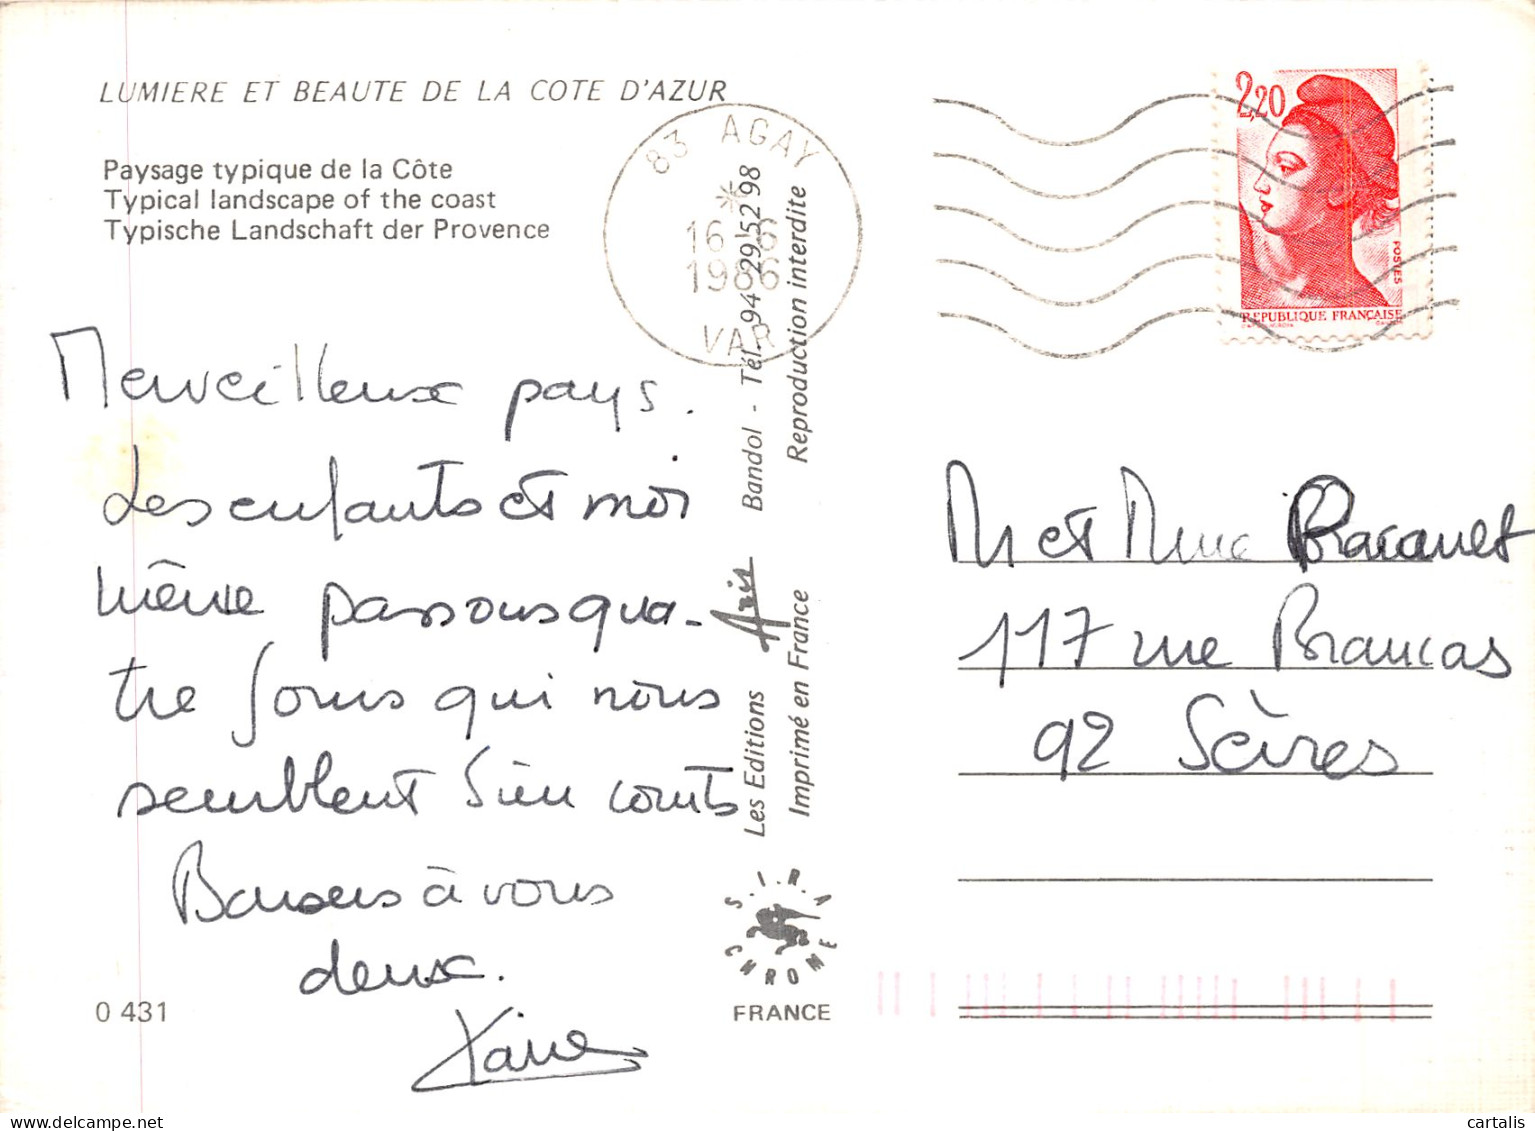 LUMIERE ET BEAUTE DE LA COTE D'AZUR
Paysage typique de la Côte
Typical landscape of the coast
Typische Landschaft der Provence
83 AGAY
*
16-6
1986
VAR
2,20
POSTES
REPUBLIQUE FRANÇAISE
Merveilleux pays.
Les enfants et moi
même passons qua-
tre jours qui nous
semblent bien courts
Baisers à vous
deux.
0 431
Les Editions Aris Bandol - Tél. 94 29 52 98
Imprimé en France Reproduction interdite
S.I.R.A
CHROME
FRANCE
M et Mme
117 rue Brancas
92 Sèvres
cartalis